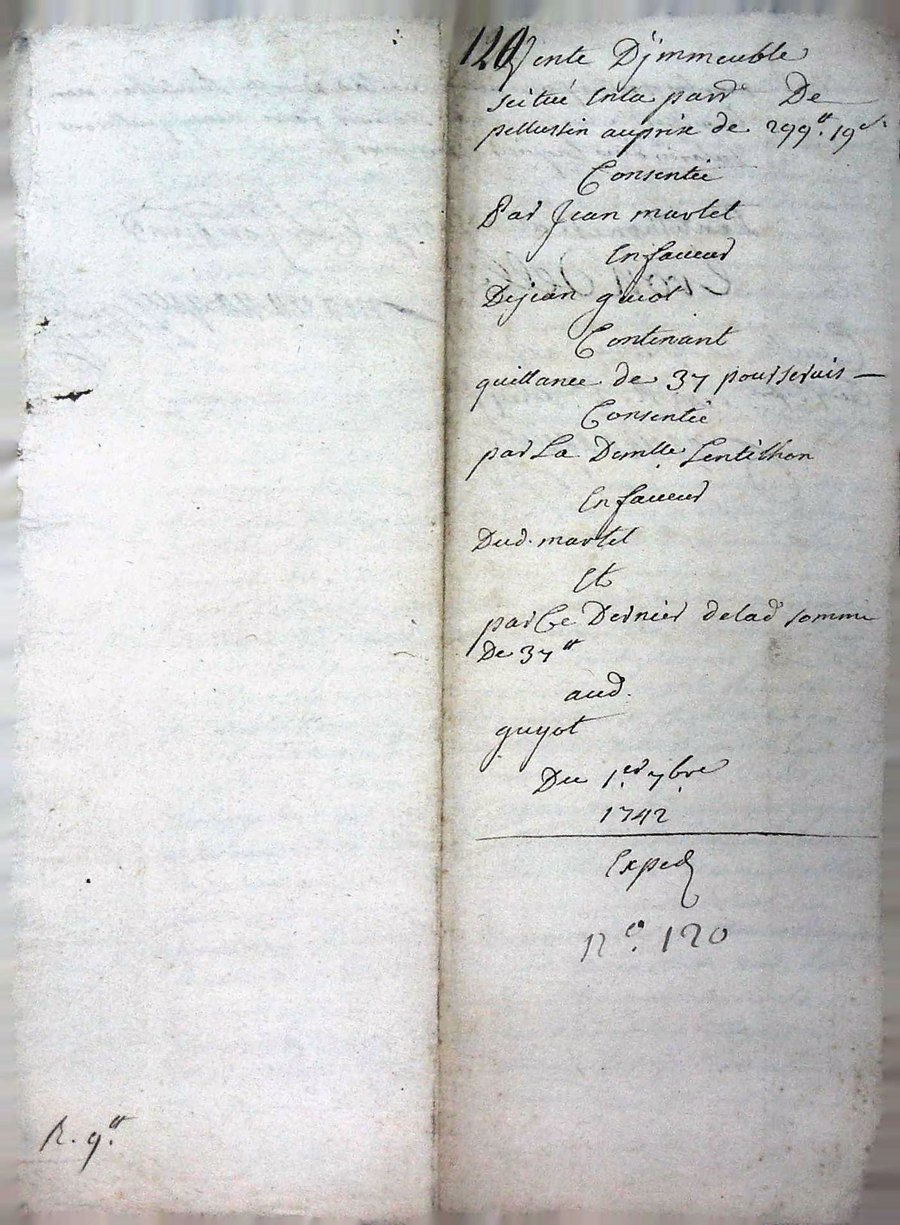 120
Vente D'jmmeuble
scitué enla parr.e De
pellussin auprix de 299.tt 19 s.
Consentie
Par Jean martel
Enfaveur
Dejean guiot
Contenant
quittance de 37
Consentie
par La Demlle. Lentilhon
Enfaveur
Dud. martel
Et
par Ce Dernier delad somme
De 37 tt
aud.
guyot
Du 1.er 7bre
1742
Exped
N.o 120
R. 9.tt